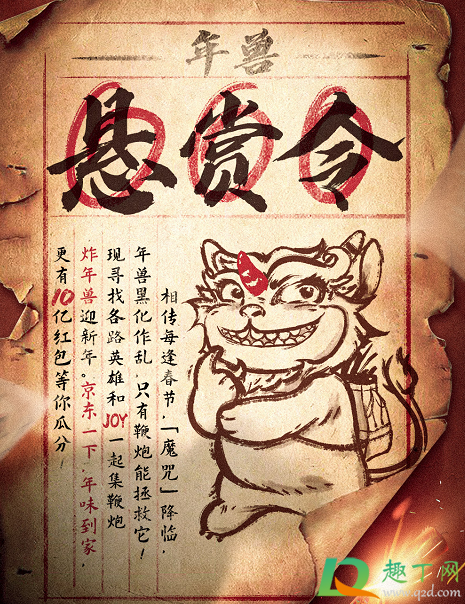 年兽
悬赏令
相传每逢春节，「魔咒」降临，
年兽黑化作乱，只有鞭炮能拯救它！
现寻找各路英雄和JOY一起集鞭炮
炸年兽迎新年。京东一下，年味到家，
更有10亿红包等你瓜分！
趣丁网
www.q2d.com